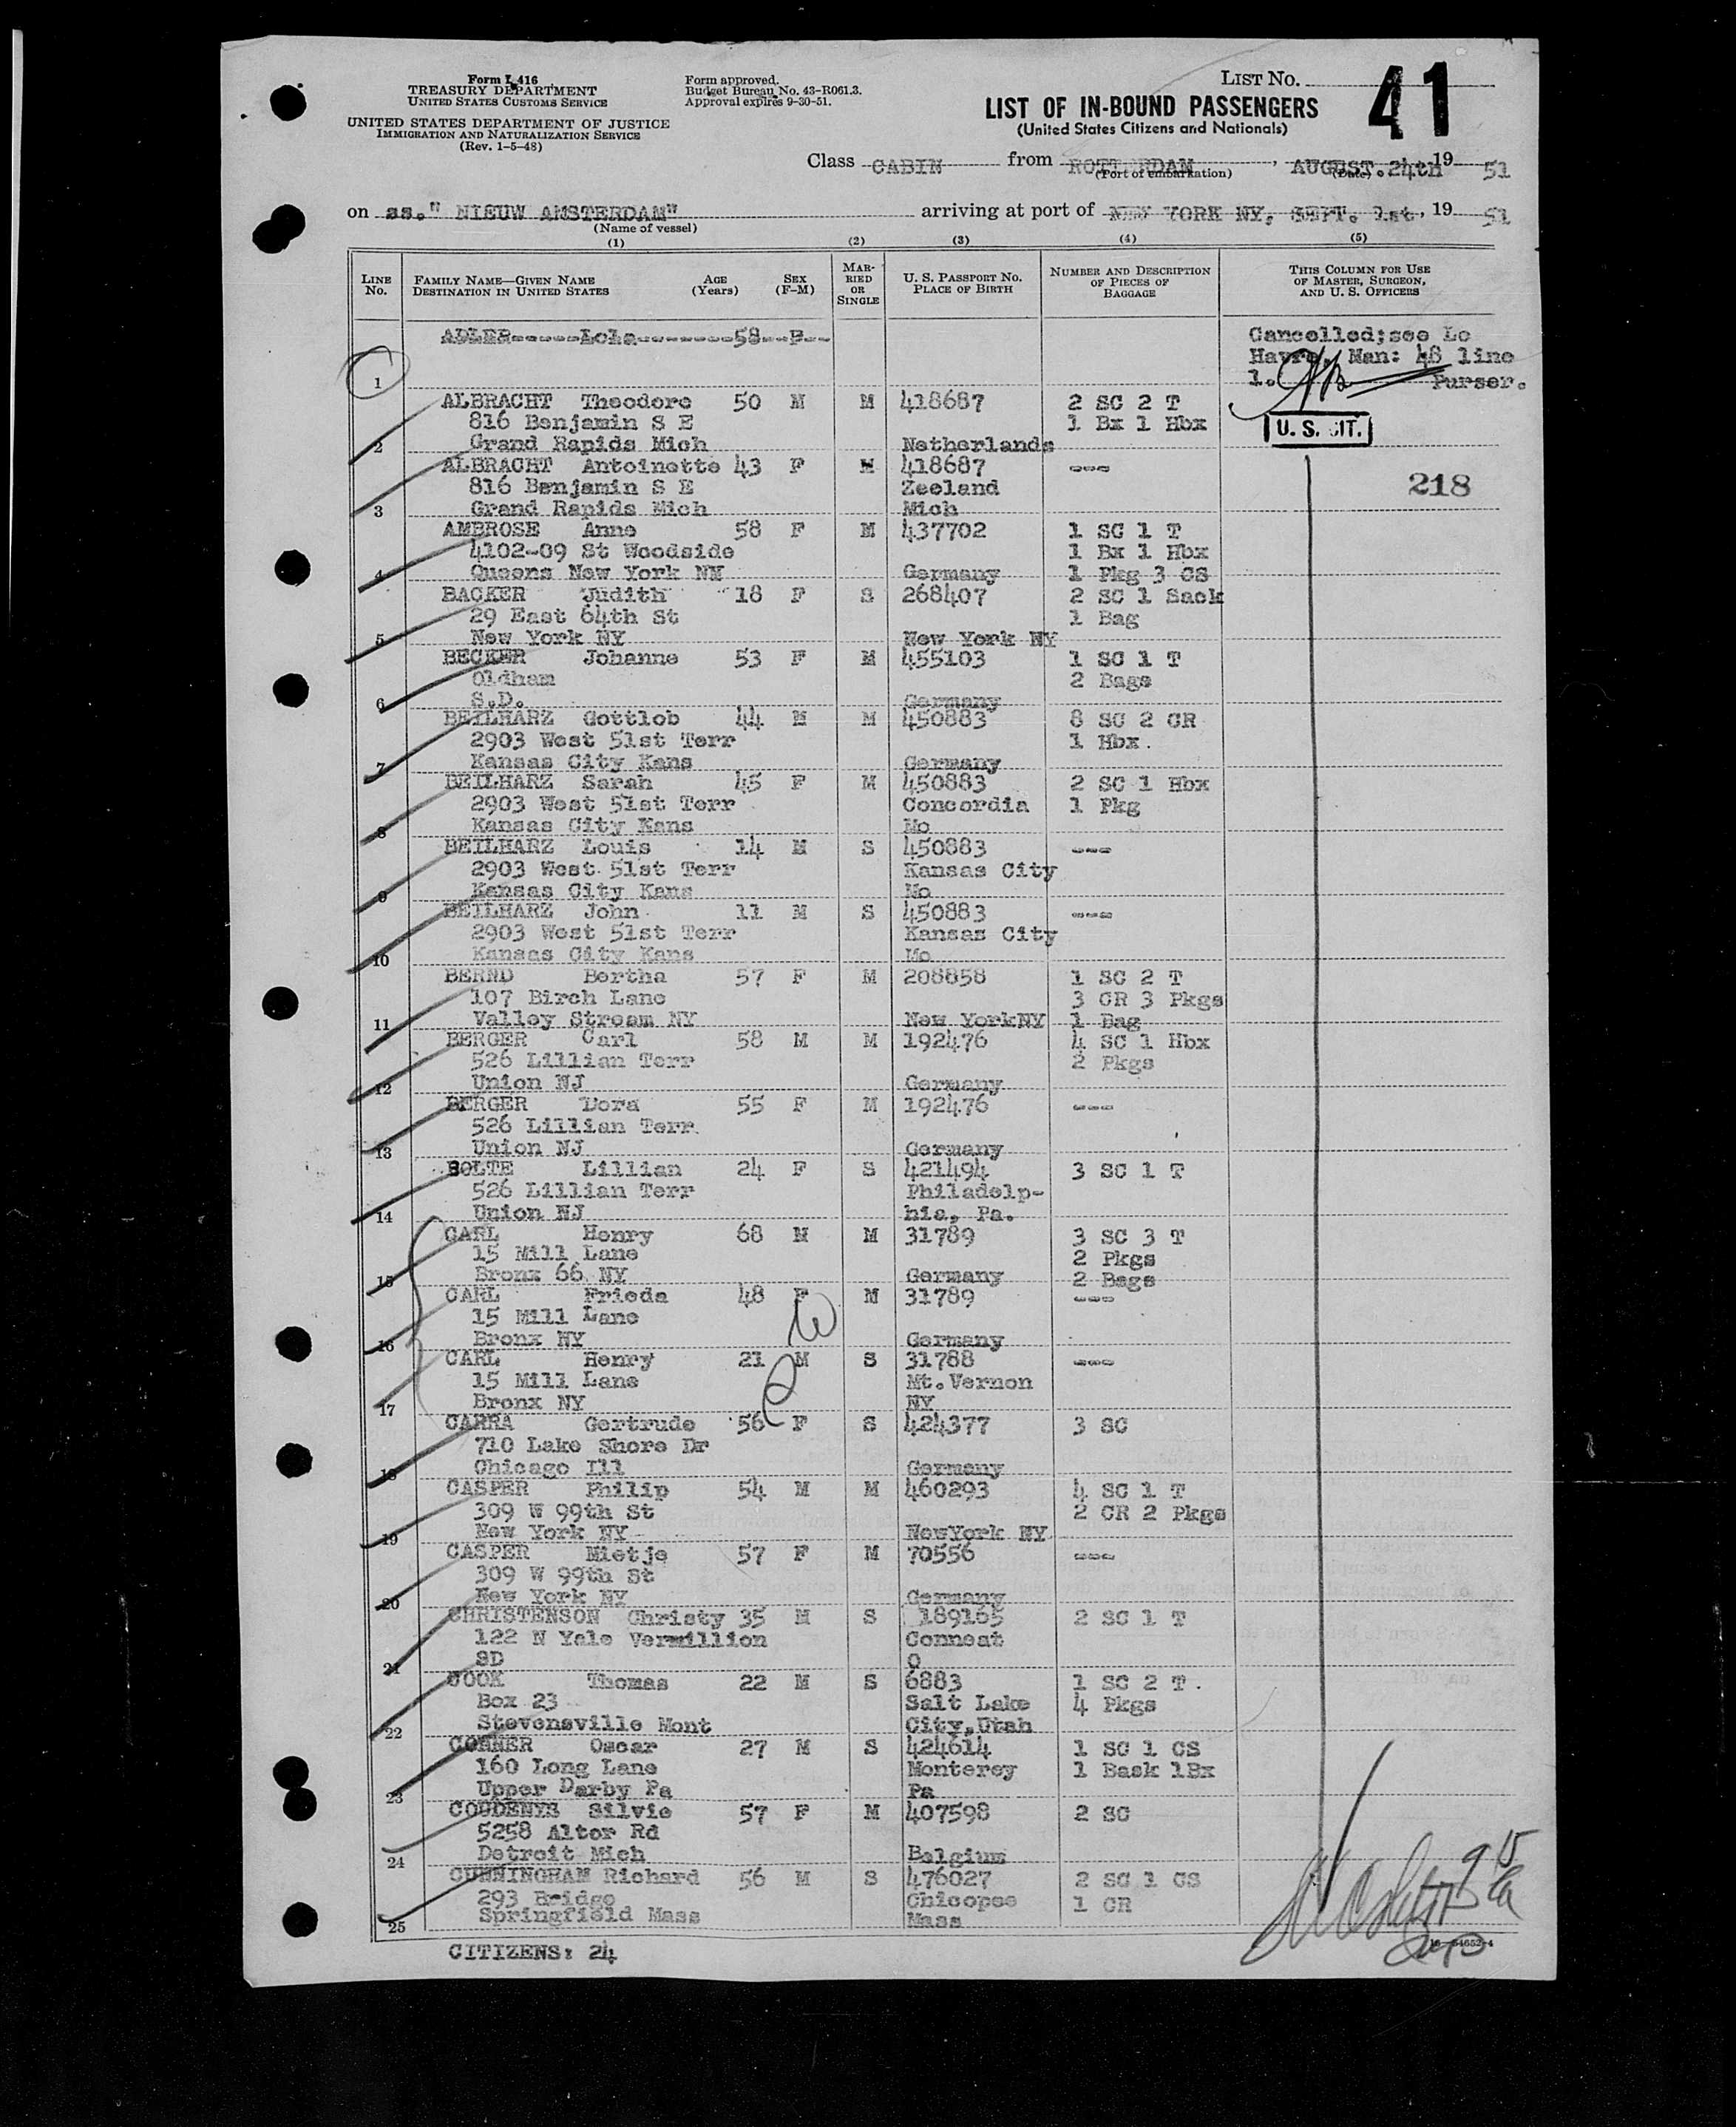 Form I 416
TREASURY DEPARTMENT
UNITED STATES CUSTOMS SERVICE
UNITED STATES DEPARTMENT OF JUSTICE
IMMIGRATION AND NATURALIZATION SERVICE
(Rev. 1-5-48)
Form approved.
Budget Bureau No. 43-R061.3.
Approval expires 9-30-51.
LIST NO. 41
LIST OF IN-BOUND PASSENGERS
(United States Citizens and Nationals)
Class CABIN from ROTTERDAM, AUGUST.24th 19 51
(Port of embarkation) (Date)
on ss." NIEUW AMSTERDAM" arriving at port of NEW YORK NY, SEPT. 1st, 19 51
(Name of vessel)
(1) (2) (3) (4) (5)
LINE NO. FAMILY NAME—GIVEN NAME DESTINATION IN UNITED STATES AGE (Years) SEX (F-M) MARRIED OR SINGLE U. S. PASSPORT NO. PLACE OF BIRTH NUMBER AND DESCRIPTION OF PIECES OF BAGGAGE THIS COLUMN FOR USE OF MASTER, SURGEON, AND U. S. OFFICERS
ADLER-----Lola--------58--F-- Cancelled;see Le
Havre. Man: 48 line
1 1. Purser.
ALBRACHT Theodore 50 M M 418687 2 SC 2 T
816 Benjamin S E 1 Bx 1 Hbx U. S. CIT.
2 Grand Rapids Mich Netherlands
ALBRACHT Antoinette 43 F M 418687 ---
816 Benjamin S E Zeeland 218
3 Grand Rapids Mich Mich
AMBROSE Anne 58 F M 437702 1 SC 1 T
4102-09 St Woodside 1 Bx 1 Hbx
4 Queens New York NY Germany 1 Pkg 3 CS
BACKER Judith 18 F S 268407 2 SC 1 Sack
29 East 64th St 1 Bag
5 New York NY New York NY
BECKER Johanne 53 F M 455103 1 SC 1 T
Oldham 2 Bags
6 S.D. Germany
BEILHARZ Gottlob 44 M M 450883 8 SC 2 CR
2903 West 51st Terr 1 Hbx.
7 Kansas City Kans Germany
BEILHARZ Sarah 45 F M 450883 2 SC 1 Hbx
2903 West 51st Terr Concordia 1 Pkg
8 Kansas City Kans Mo
BEILHARZ Louis 14 M S 450883 ---
2903 West 51st Terr Kansas City
9 Kansas City Kans Mo
BEILHARZ John 11 M S 450883 ---
2903 West 51st Terr Kansas City
10 Kansas City Kans Mo
BERND Bertha 57 F M 208858 1 SC 2 T
107 Birch Lane 3 CR 3 Pkgs
11 Valley Stream NY New YorkNY 1 Bag
BERGER Carl 58 M M 192476 4 SC 1 Hbx
526 Lillian Terr 2 Pkgs
12 Union NJ Germany
BERGER Dora 55 F M 192476 ---
526 Lillian Terr.
13 Union NJ Germany
BOLTE Lillian 24 F S 421494 3 SC 1 T
526 Lillian Terr Philadelp-
14 Union NJ hia, Pa.
CARL Henry 68 M M 31789 3 SC 3 T
15 Mill Lane 2 Pkgs
15 Bronx 66 NY Germany 2 Bags
CARL Frieda 48 F M 31789 ---
15 Mill Lane
16 Bronx NY Germany
CARL Henry 21 M S 31788 ---
15 Mill Lane Mt.Vernon
17 Bronx NY NY
CARRA Gertrude 56 F S 424377 3 SC
710 Lake Shore Dr
18 Chicago Ill Germany
CASPER Philip 54 M M 460293 4 SC 1 T
309 W 99th St 2 CR 2 Pkgs
19 New York NY NewYork NY
CASPER Mietje 57 F M 70556 ---
309 W 99th St
20 New York NY Germany
CHRISTENSON Christy 35 M S 189165 2 SC 1 T
122 N Yale Vermillion Conneat
21 SD O
COOK Thomas 22 M S 6883 1 SC 2 T.
Box 23 Salt Lake 4 Pkgs
22 Stevensville Mont City,Utah
CORNER Oscar 27 M S 424614 1 SC 1 CS
160 Long Lane Monterey 1 Bask 1Bx
23 Upper Darby Pa Pa
COUDENYS Silvie 57 F M 407598 2 SC
5258 Alter Rd
24 Detroit Mich Belgium
CUNNINGHAM Richard 56 M S 476027 2 SC 1 CS
293 Bridge Chicopee 1 CR
25 Springfield Mass Mass
CITIZENS: 24